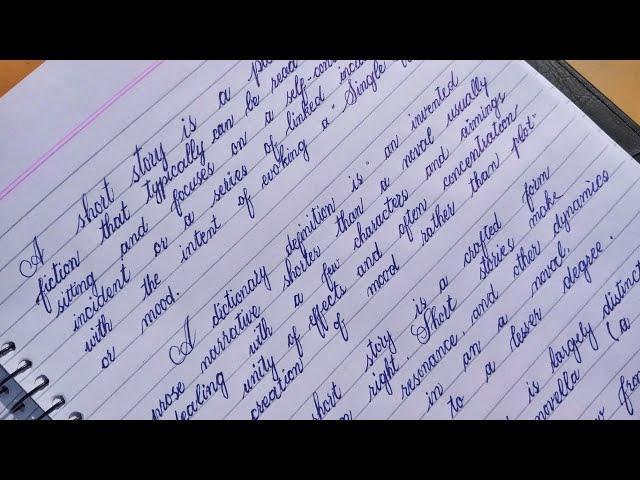 A short story is a
fiction that typically can be read
sitting and focuses on a self-con
incident or a series of linked inci
with the intent of evoking a "Single
or mood.
A dictionary definition is "an invented
prose narrative shorter than a noval usually
dealing with a few characters and aimings
unity of effects and often concentration
creation of mood rather than plot"
short story is a crafted form
right. Short stories make
resonance, and other dynamics
in an a noval,
to a lesser degree.
is largely distinct
novella (a
from